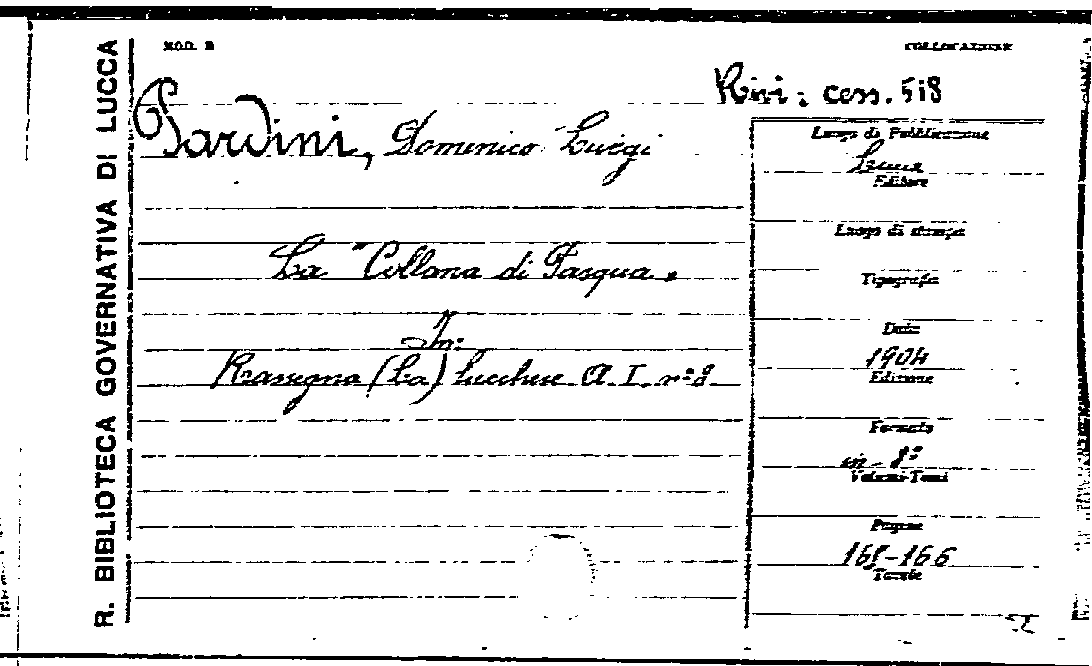 R. BIBLIOTECA GOVERNATIVA DI LUCCA
MOD. B
COLLOCAZIONE
Rivi: cess. 518
Pardini, Domenico Luigi
La "Collana di Pasqua.
In:
Rassegna (La) lucchese A. I. nº 8
Luogo di Pubblicazione
Lucca
Editore
Luogo di stampa
Tipografia
Data
1904
Edizione
Formato
in-8º
Volumi-Tomi
Pagine
-166
Tavole